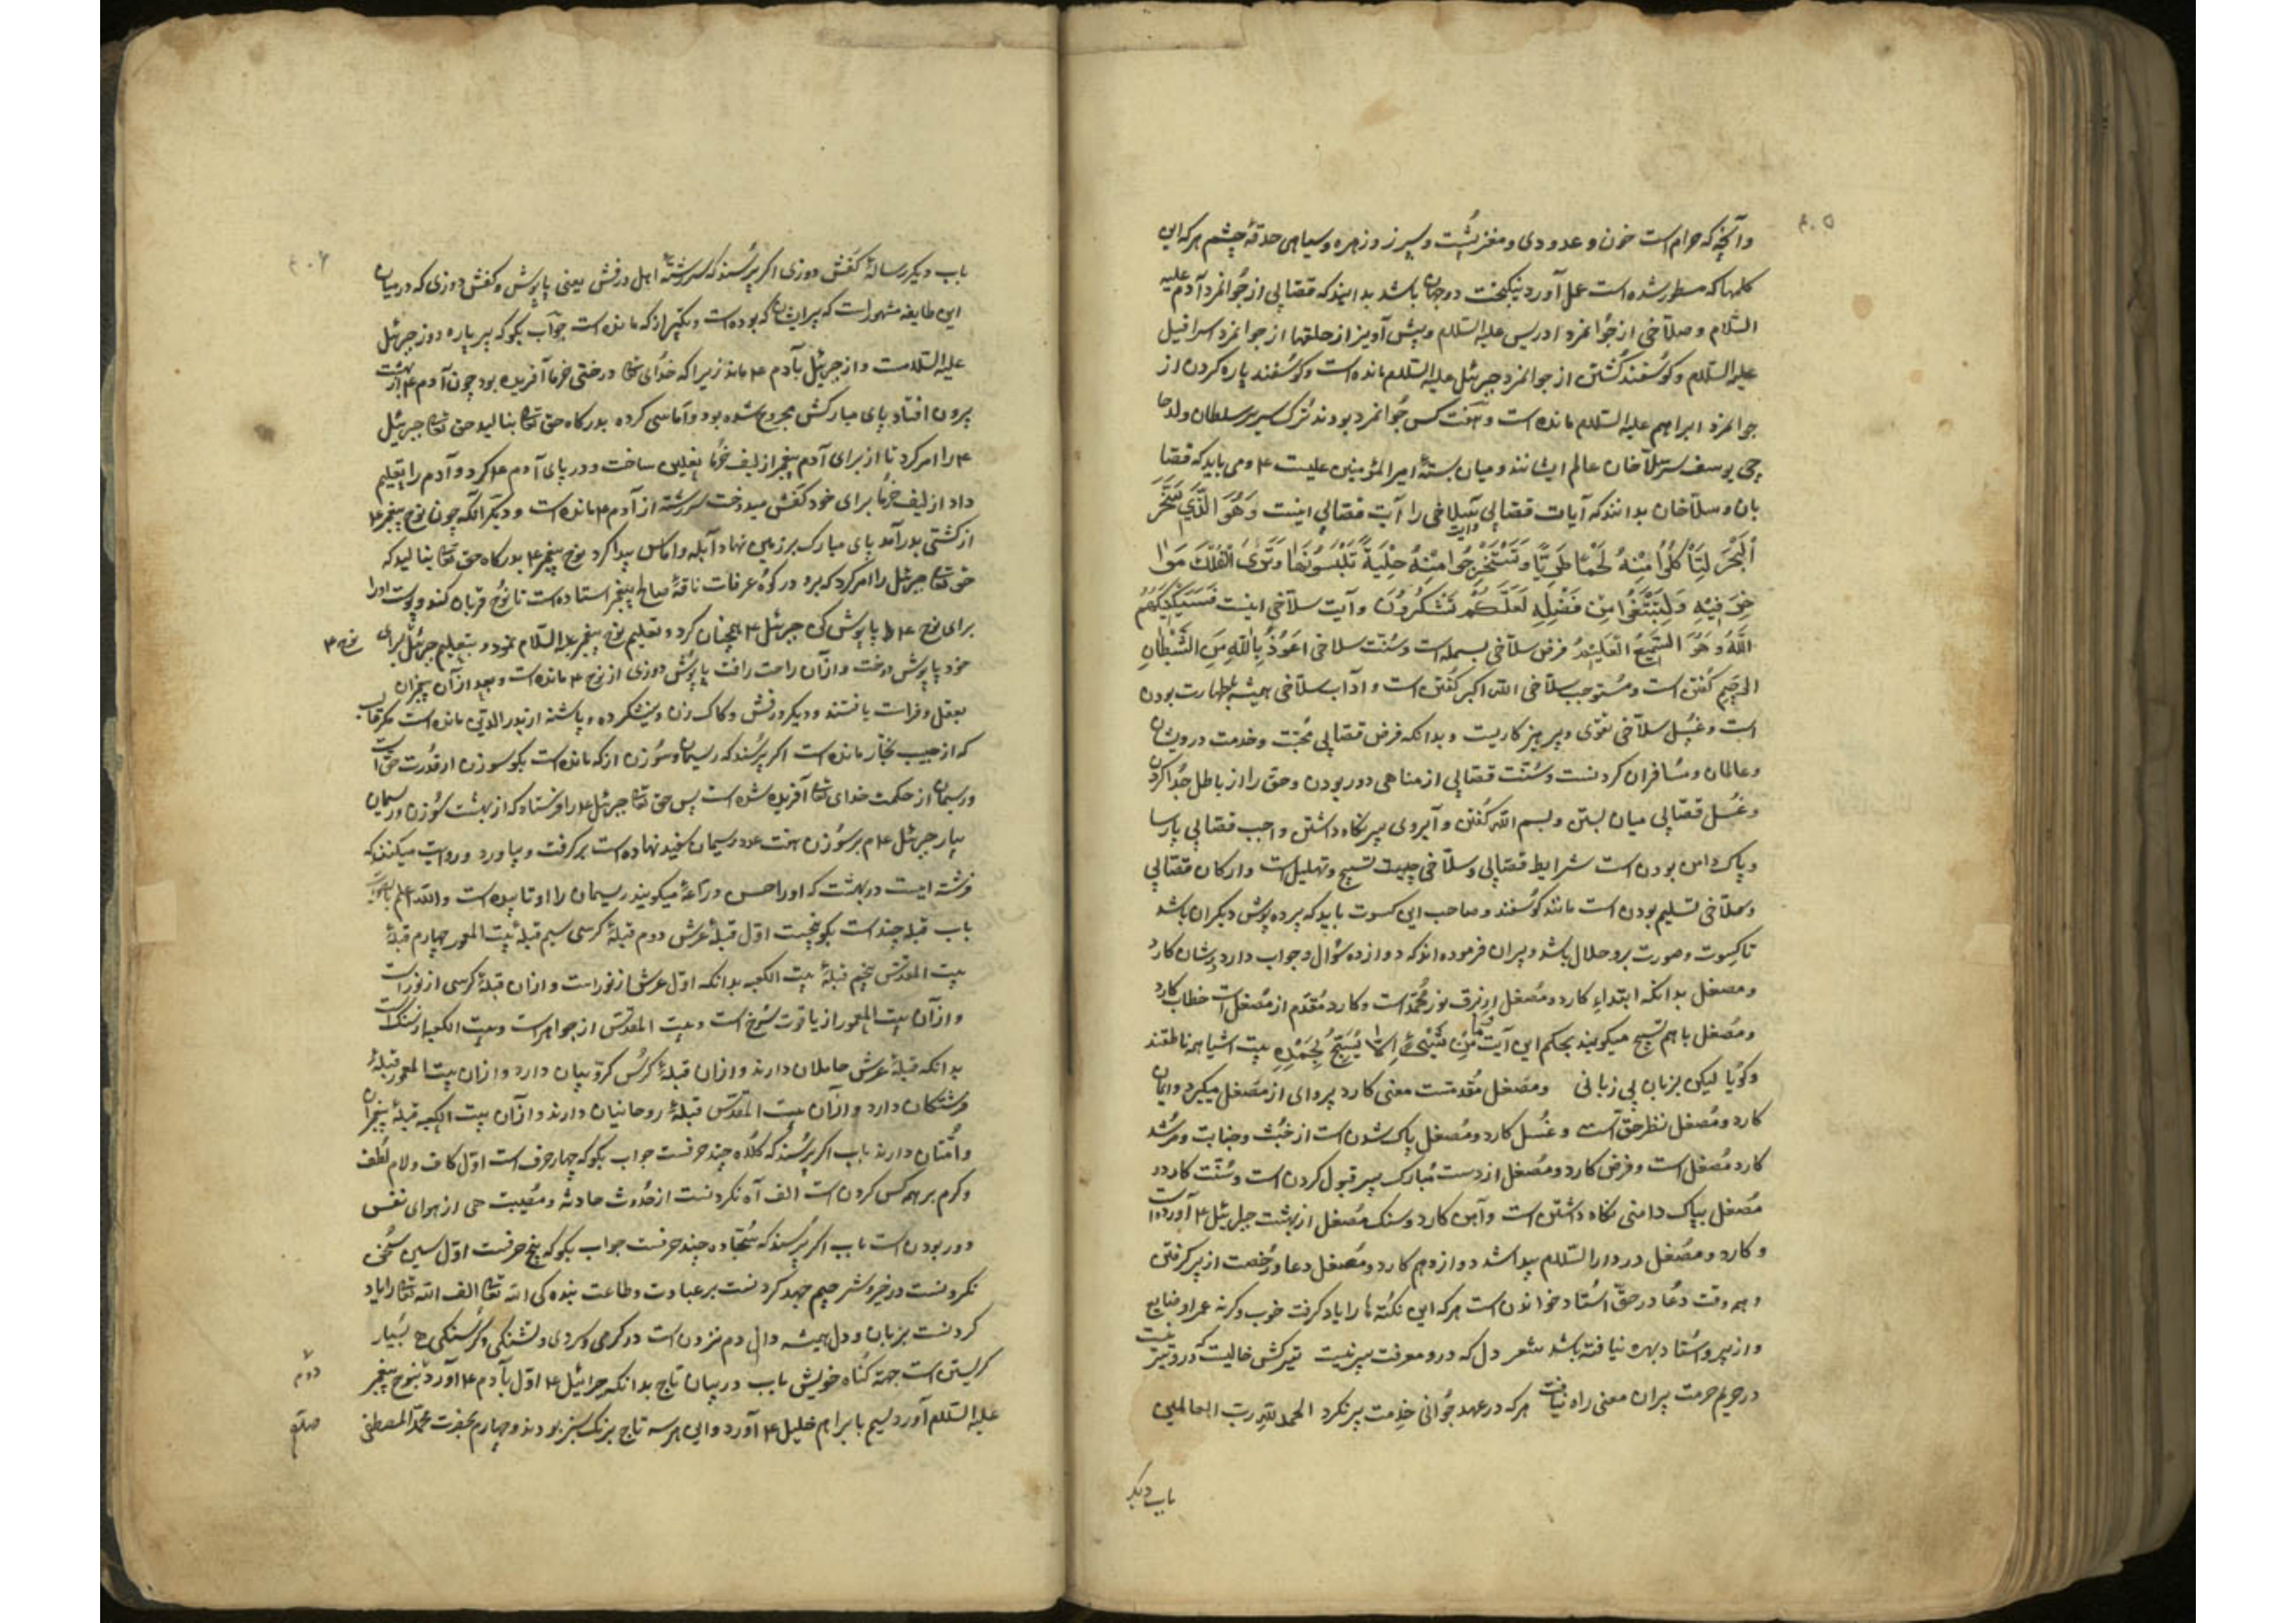 ۴۰۵
وآنچه که حرام است خون و غدودی و مغز پشت و سپرز و زهره و سیاهی حدقهٔ چشم هر که این
کلمها که مسطور شده است عمل آورد نیکبخت دو جهان باشد بدانید که قصابی از جوانمرد آدم علیه
السّلام و صلاخی از جوانمرد ادریس علیه السّلام و پیش آویز از حلقها از جوانمرد اسرافیل
علیه السّلام و کوسفند کشتن از جوانمرد جبرئیل علیه السّلام مانده است و کوسفند پاره کردن از
جوانمرد ابراهیم علیه السّلام مانده است و هفت کس جوانمرد بودند ترک سریر سلطان ولد
چی یوسف سرسلاخان عالم ایشانند و میان بستهٔ امیر المؤمنین علیست ۴ و می باید که قصا
بان و سلاخان بدانند که آیات قصابی سلاخی را آیت قصابی اینست وَهُوَ الَّذِي سَخَّرَ
الْبَحْرَ لِتَأْكُلُوا مِنْهُ لَحْمًا طَرِيًّا وَتَسْتَخْرِجُوا مِنْهُ حِلْيَةً تَلْبَسُونَهَا وَتَرَى الْفُلْكَ مَوَا
خِرَ فِيهِ وَلِتَبْتَغُوا مِنْ فَضْلِهِ لَعَلَّكُمْ تَشْكُرُونَ و آیت سلاخی اینست فَسَيَكْفِيكَهُمُ
اللَّهُ وَهُوَ السَّمِيعُ الْعَلِيمُ فرض سلاخی بسمله است و سنّت سلاخی اَعُوذُ بِاللَّهِ مِنَ الشَّيْطَانِ
الرجیم کفتن است و مستوجب سلاخی الله اکبر کفتن است و آداب سلاخی همیشه بطهارت بودن
است و غسل سلاخی تقوی و پرهیز کاریست و بدانکه فرض قصابی محبّت و خدمت درویشان
و عالمان و مسافران کردنست و سنّت قصابی از مناهی دور بودن و حق را از باطل جدا کردن
و غسل قصابی میان بستن و بسم الله کفتن و آبروی پیر نکاه داشتن واجب قصابی پارسا
و پاک دامن بودن است شرایط قصابی و سلاخی چیست تسبیح و تهلیل است و ارکان قصابی
و سلاخی تسلیم بودن است مانند کوسفند و صاحب این کسوت باید که پرده پوش دیکران باشد
تا کسوت و صورت برو حلال باشد و پیران فرموده اند که دوازده سؤال و جواب دارد کارد
و مصغل بدانکه ابتداء کارد و مصغل از نور محمد است و کارد مقدّم از مصغل است خطاب کارد
و مصغل باهم تسبیح میکویند بحکم این آیت وَمَا مِنْ شَيْءٍ اِلَّا يُسَبِّحُ بِحَمْدِهِ بیت اشیا همه ناطقند
و کویا لیکن بزبان بی زبانی و مصغل مقدمست معنی کارد پروای از مصغل میکیرد و ایمان
کارد و مصغل نظر حق است و غسل کارد و مصغل پاک شدن است از خبث و جنابت و مرشد
کارد مصغل است و فرض کارد و مصغل از دست مبارک پیر قبول کردن است و سنّت کارد و
مصغل بپاک دامنی نکاه داشتن است و آهن کارد و سنک مصغل از بهشت جبرئیل ۴ آورده است
و کارد و مصغل در دار السّلام پیدا شد دوازدهم کارد و مصغل دعا و رخصت از پیر کرفتن
و همه وقت دعا در حق استاد خواندن است هر که این نکته ها را یاد کرفت خوب و کرنه عمر او ضایع
و از پیر و استاد بهره نیافته باشد شعر دل که درو معرفت پیر نیست تیرکش خالیست که درو تیر نیست
در حریم حرمت پیران معنی راه نیافت هر که در عهد جوانی خدمت پیر نکرد الحمد لله رب العالمین
باب دیکر
۴۰۶
باب دیکر رسالهٔ کفش دوزی اکر پرسند که سررشتهٔ اهل درفش یعنی پاپوش و کفش دوزی که در میان
این طایفه مشهور است که پیر ایشان که بوده است و از که مانده است جواب بکو که پیر پاره دوز جبرئیل
علیه السّلامست و از جبرئیل بآدم ۴ ماند زیرا که خدای تعالی درختی خرما آفریده بود چون آدم ۴ از بهشت
برون افتاد پای مبارکش مجروح شده بود و آماس کرده بدرکاه حق تعالی بنالید حق تعالی جبرئیل
۴ را امر کرد تا از برای آدم پیغمبر از لیف خرما نعلین ساخت و در پای آدم ۴ کرد و آدم را تعلیم
داد از لیف خرما برای خود کفش میدوخت سررشته از آدم ۴ مانده است و دیکر آنکه چون نوح پیغمبر ۴
از کشتی بدر آمد پای مبارک بر زمین نهاد آبله و آماس پیدا کرد نوح پیغمبر ۴ بدرکاه حق تعالی بنالید که
حق تعالی جبرئیل را امر کرد که برو در کوه عرفات ناقهٔ صالح پیغمبر استاده است تا نوح قربان کند و پوست اورا
برای نوح ۴ پاپوش کن جبرئیل ۴ همچنان کرد و تعلیم نوح پیغمبر علیه السّلام نمود و بتعلیم جبرئیل برای نوح ۴
خود پاپوش دوخت و از آن راحت یافت پاپوش دوزی از نوح ۴ مانده است و بعد از آن پیغمبران
بعقل و فراست یافتند و دیکر درفش و کاک زن و نشکرده و پاشنه از پدر الدوتی مانده است مکر قالب
که از حبیب نجّار مانده است اکر پرسند که ریسمان و سوزن از که مانده است بکو سوزن از قدرت حق است
و ریسمان از حکمت خدای تعالی آفریده شده است پس حق تعالی جبرئیل ۴ را فرستاد که از بهشت سوزن و ریسمان
بیار جبرئیل ۴ هم بر سوزن هفت عدد ریسمان سفید نهاده است بر کرفت و بیاورد و روایت میکنند که
فرشته ایست در بهشت که اورا میکویند ریسمان را او تابیده است والله اعلم بالصواب
باب قبله چند است بکو پنجست اوّل قبلهٔ عرش دوم قبلهٔ کرسی سیم قبلهٔ بیت المعمور چهارم قبلهٔ
بیت المقدّس پنجم قبلهٔ بیت الکعبه بدانکه اوّل عرش از نور است و از آن قبلهٔ کرسی از نور است
و از آن بیت المعمور از یاقوت سرخ است و بیت المقدّس از جواهر است و بیت الکعبه از سنک است
بدانکه قبلهٔ عرش حاملان دارند و از آن قبلهٔ کرسی کرّوبیان دارد و از آن بیت المعمور قبلهٔ
فرشتکان دارد و از آن بیت المقدّس قبلهٔ روحانیان دارند و از آن بیت الکعبه قبلهٔ پیغمبران
و امّتان دارند باب اکر پرسند که کلاه چند حرفست جواب بکو که چهار حرف است اوّل کاف و لام لطف
و کرم بر همه کس کردن است الف آه نکردنست از حدوث حادثه و مصیبت هی از هوای نفس
دور بودن است باب اکر پرسند که سجّاده چند حرفست جواب بکو که پنج حرفست اوّل سین سخی
نکردنست در خیر و شر جیم جهد کردنست بر عبادت و طاعت بنده کی الله تعالی الف الله تعالی را یاد
کردنست بزبان و دل همیشه دال دم نزدن است در کرمی و سردی و تشنکی و کرسنکی ه بسیار
کریستن است جهت کناه خویش باب در بیان تاج بدانکه جبرائیل ۴ اوّل بآدم ۴ آورد دوّم بنوح پیغمبر
علیه السّلام آورد سیم بابراهم خلیل ۴ آورد و این هر سه تاج برنک سبز بودند و چهارم بحضرت محمّد المصطفی صلّعم